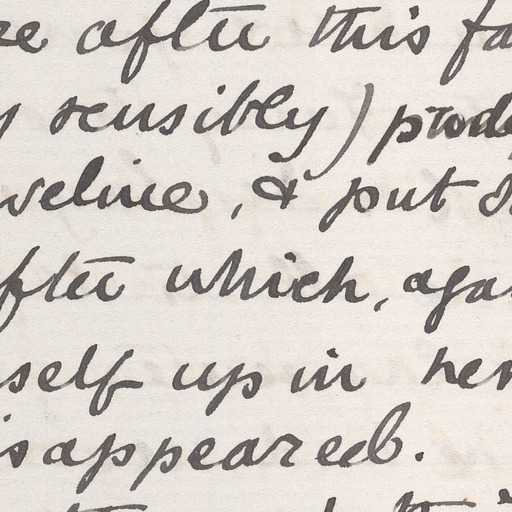 re after this fa
y sensibly) prod
veline, & put
fter which, aga
self up in her
isappeared.